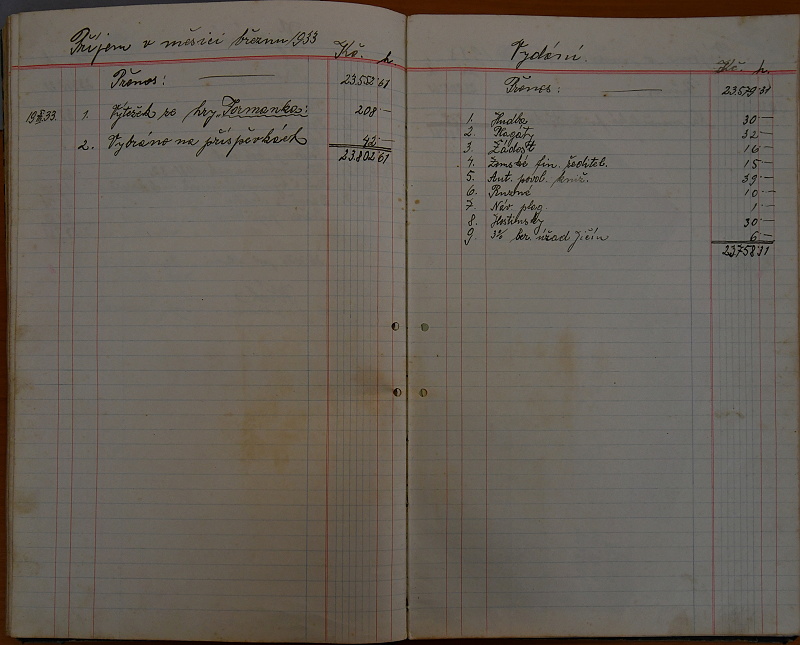 Příjem v měsíci březnu 1933
Kč. h.
Přenos: 23.552 61
19/III 33. 1. Výtěžek ze hry „Formanka: 208 —
2. Vybráno na příspěvkách 42 —
23.802 61
Vydání.
Kč. h.
Přenos: 23.579 31
1. Hudba 30 —
2. Kagáty 32 —
3. Žádost 16 —
4. Zemské fin. ředitel. 15 —
5. Aut. povol. knih. 39 —
6. Různé 10 —
7. Náv. 1 —
8. Hostinský 30 —
9 3% ber. úřad Jičín 6 —
23.758 31